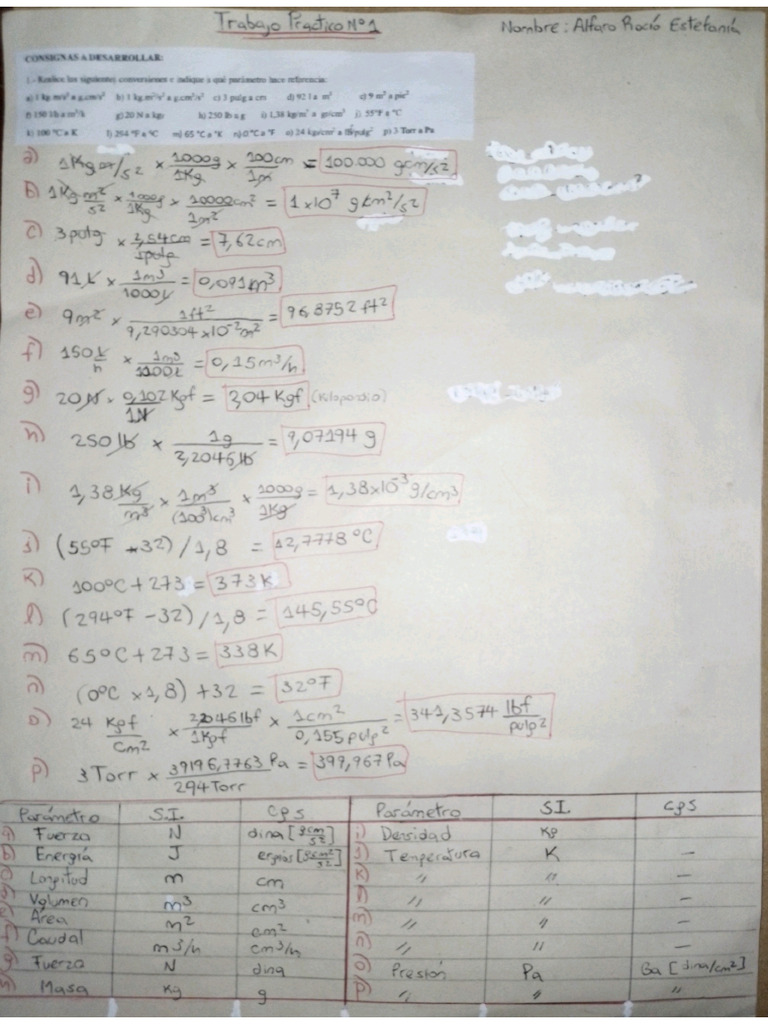 Trabajo Práctico Nº1
Nombre: Alfaro Rocío Estefanía
CONSIGNAS A DESARROLLAR:
1.- Realice las siguientes conversiones e indique a qué parámetro hace referencia:
a) 1 kg.m/s² a g.cm/s² b) 1 kg.m²/s² a g.cm²/s² c) 3 pulg a cm d) 92 l a m³ e) 9 m² a pie²
f) 150 l/h a m³/h g) 20 N a kgf h) 250 lb a g i) 1,38 kg/m³ a gr/cm³ j) 55°F a °C
k) 100 °C a K l) 294 °F a °C m) 65 °C a °K n) 0 °C a °F o) 24 kgf/cm² a lbf/pulg² p) 3 Torr a Pa
a) 1Kg m/s² × 1000g/1Kg × 100cm/1m = 100.000 gcm/s²
b) 1Kg m²/s² × 1000g/1Kg × 10000cm²/1m² = 1×10⁷ gcm²/s²
c) 3pulg × 2,54cm/1pulg = 7,62cm
d) 91L × 1m³/1000L = 0,091m³
e) 9m² × 1ft²/9,290304×10⁻²m² = 96,8752 ft²
f) 150 L/h × 1m³/1000L = 0,15m³/h
g) 20N × 0,102Kgf/1N = 2,04 Kgf (Kilopondio)
h) 250lb × 1g/2,2046lb = 9,07194 g
i) 1,38Kg/m³ × 1m³/(100³)cm³ × 1000g/1Kg = 1,38×10⁻³g/cm³
j) (55°F -32)/1,8 = 12,7778°C
k) 100°C+273 = 373K
l) (294°F -32)/1,8 = 145,55°C
m) 65°C+273 = 338K
n) (0°C ×1,8) +32 = 32°F
o) 24 Kgf/cm² × 2,2046lbf/1Kgf × 1cm²/0,155pulg² = 341,3574 lbf/pulg²
p) 3Torr × 39196,7763 Pa/294Torr = 399,967Pa
Parámetro S.I. CgS Parámetro S.I. CgS
a) Fuerza N dina [gcm/s²] i) Densidad Kg
b) Energía J ergios [gcm²/s²] j) Temperatura K —
c) Longitud m cm k) " " —
d) Volumen m³ cm³ l) " " —
e) Área m² cm² m) " " —
f) Caudal m³/h cm³/h n) " " —
g) Fuerza N dina o) Presión Pa Ba [dina/cm²]
h) Masa Kg g p) " " "